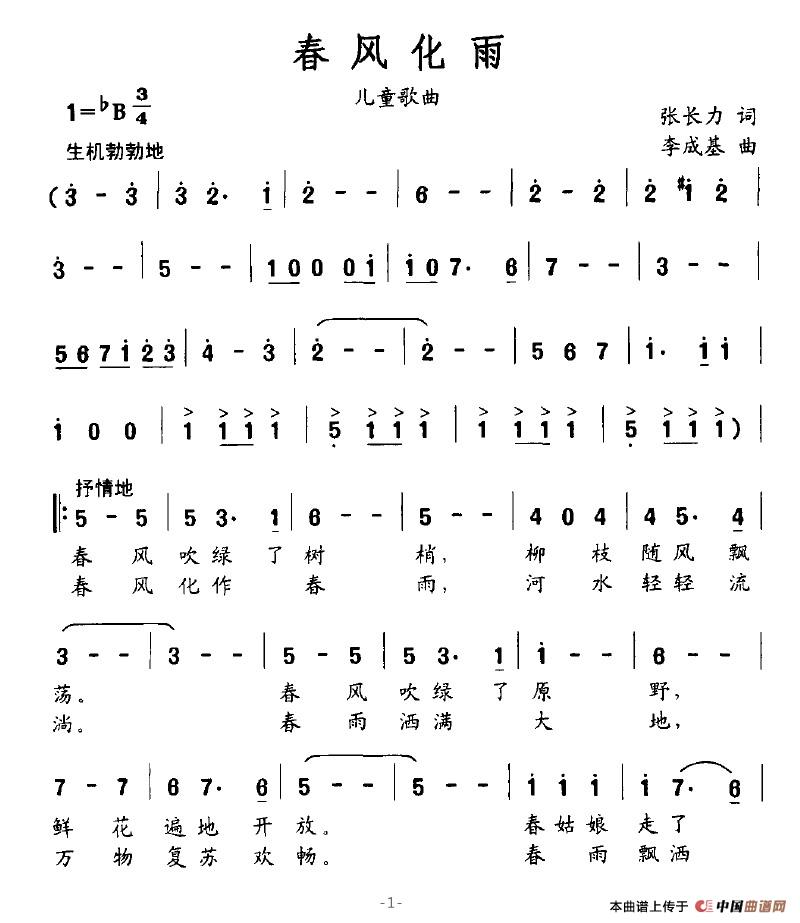 春风化雨
儿童歌曲
1=♭B 3/4
张长力 词
生机勃勃地
李成基 曲
(3̇ - 3̇ | 3̇ 2̇· 1̇ | 2̇ - - | 6 - - | 2̇ - 2̇ | 2̇ #1̇ 2̇ |
3̇ - - | 5 - - | 1̇ 0 0 0 0 1̇ | 1̇ 0 7· 6 | 7 - - | 3 - - |
5 6 7 1̇ 2̇ 3̇ | 4̇ - 3̇ | 2̇ - - | 2̇ - - | 5 6 7 | 1̇· 1̇ 1̇ |
1̇ 0 0 | 1 1 1 1 | 5̣ 1 1 1 | 1 1 1 1 | 5̣ 1 1 1 ) |
抒情地
‖: 5 - 5 | 5 3· 1 | 6 - - | 5 - - | 4 0 4 | 4 5· 4 |
春 风 吹 绿 了 树 梢, 柳 枝 随 风 飘
春 风 化 作 春 雨, 河 水 轻 轻 流
3 - - | 3 - - | 5 - 5 | 5 3· 1 | 1̇ - - | 6 - - |
荡。 春 风 吹 绿 了 原 野,
淌。 春 雨 洒 满 大 地,
7 - 7 | 6 7· 6 | 5 - - | 5 - - | 1̇ 1̇ 1̇ | 1̇ 7· 6 |
鲜 花 遍 地 开 放。 春 姑 娘 走 了
万 物 复 苏 欢 畅。 春 雨 飘 洒
-1-
本曲谱上传于 中国曲谱网